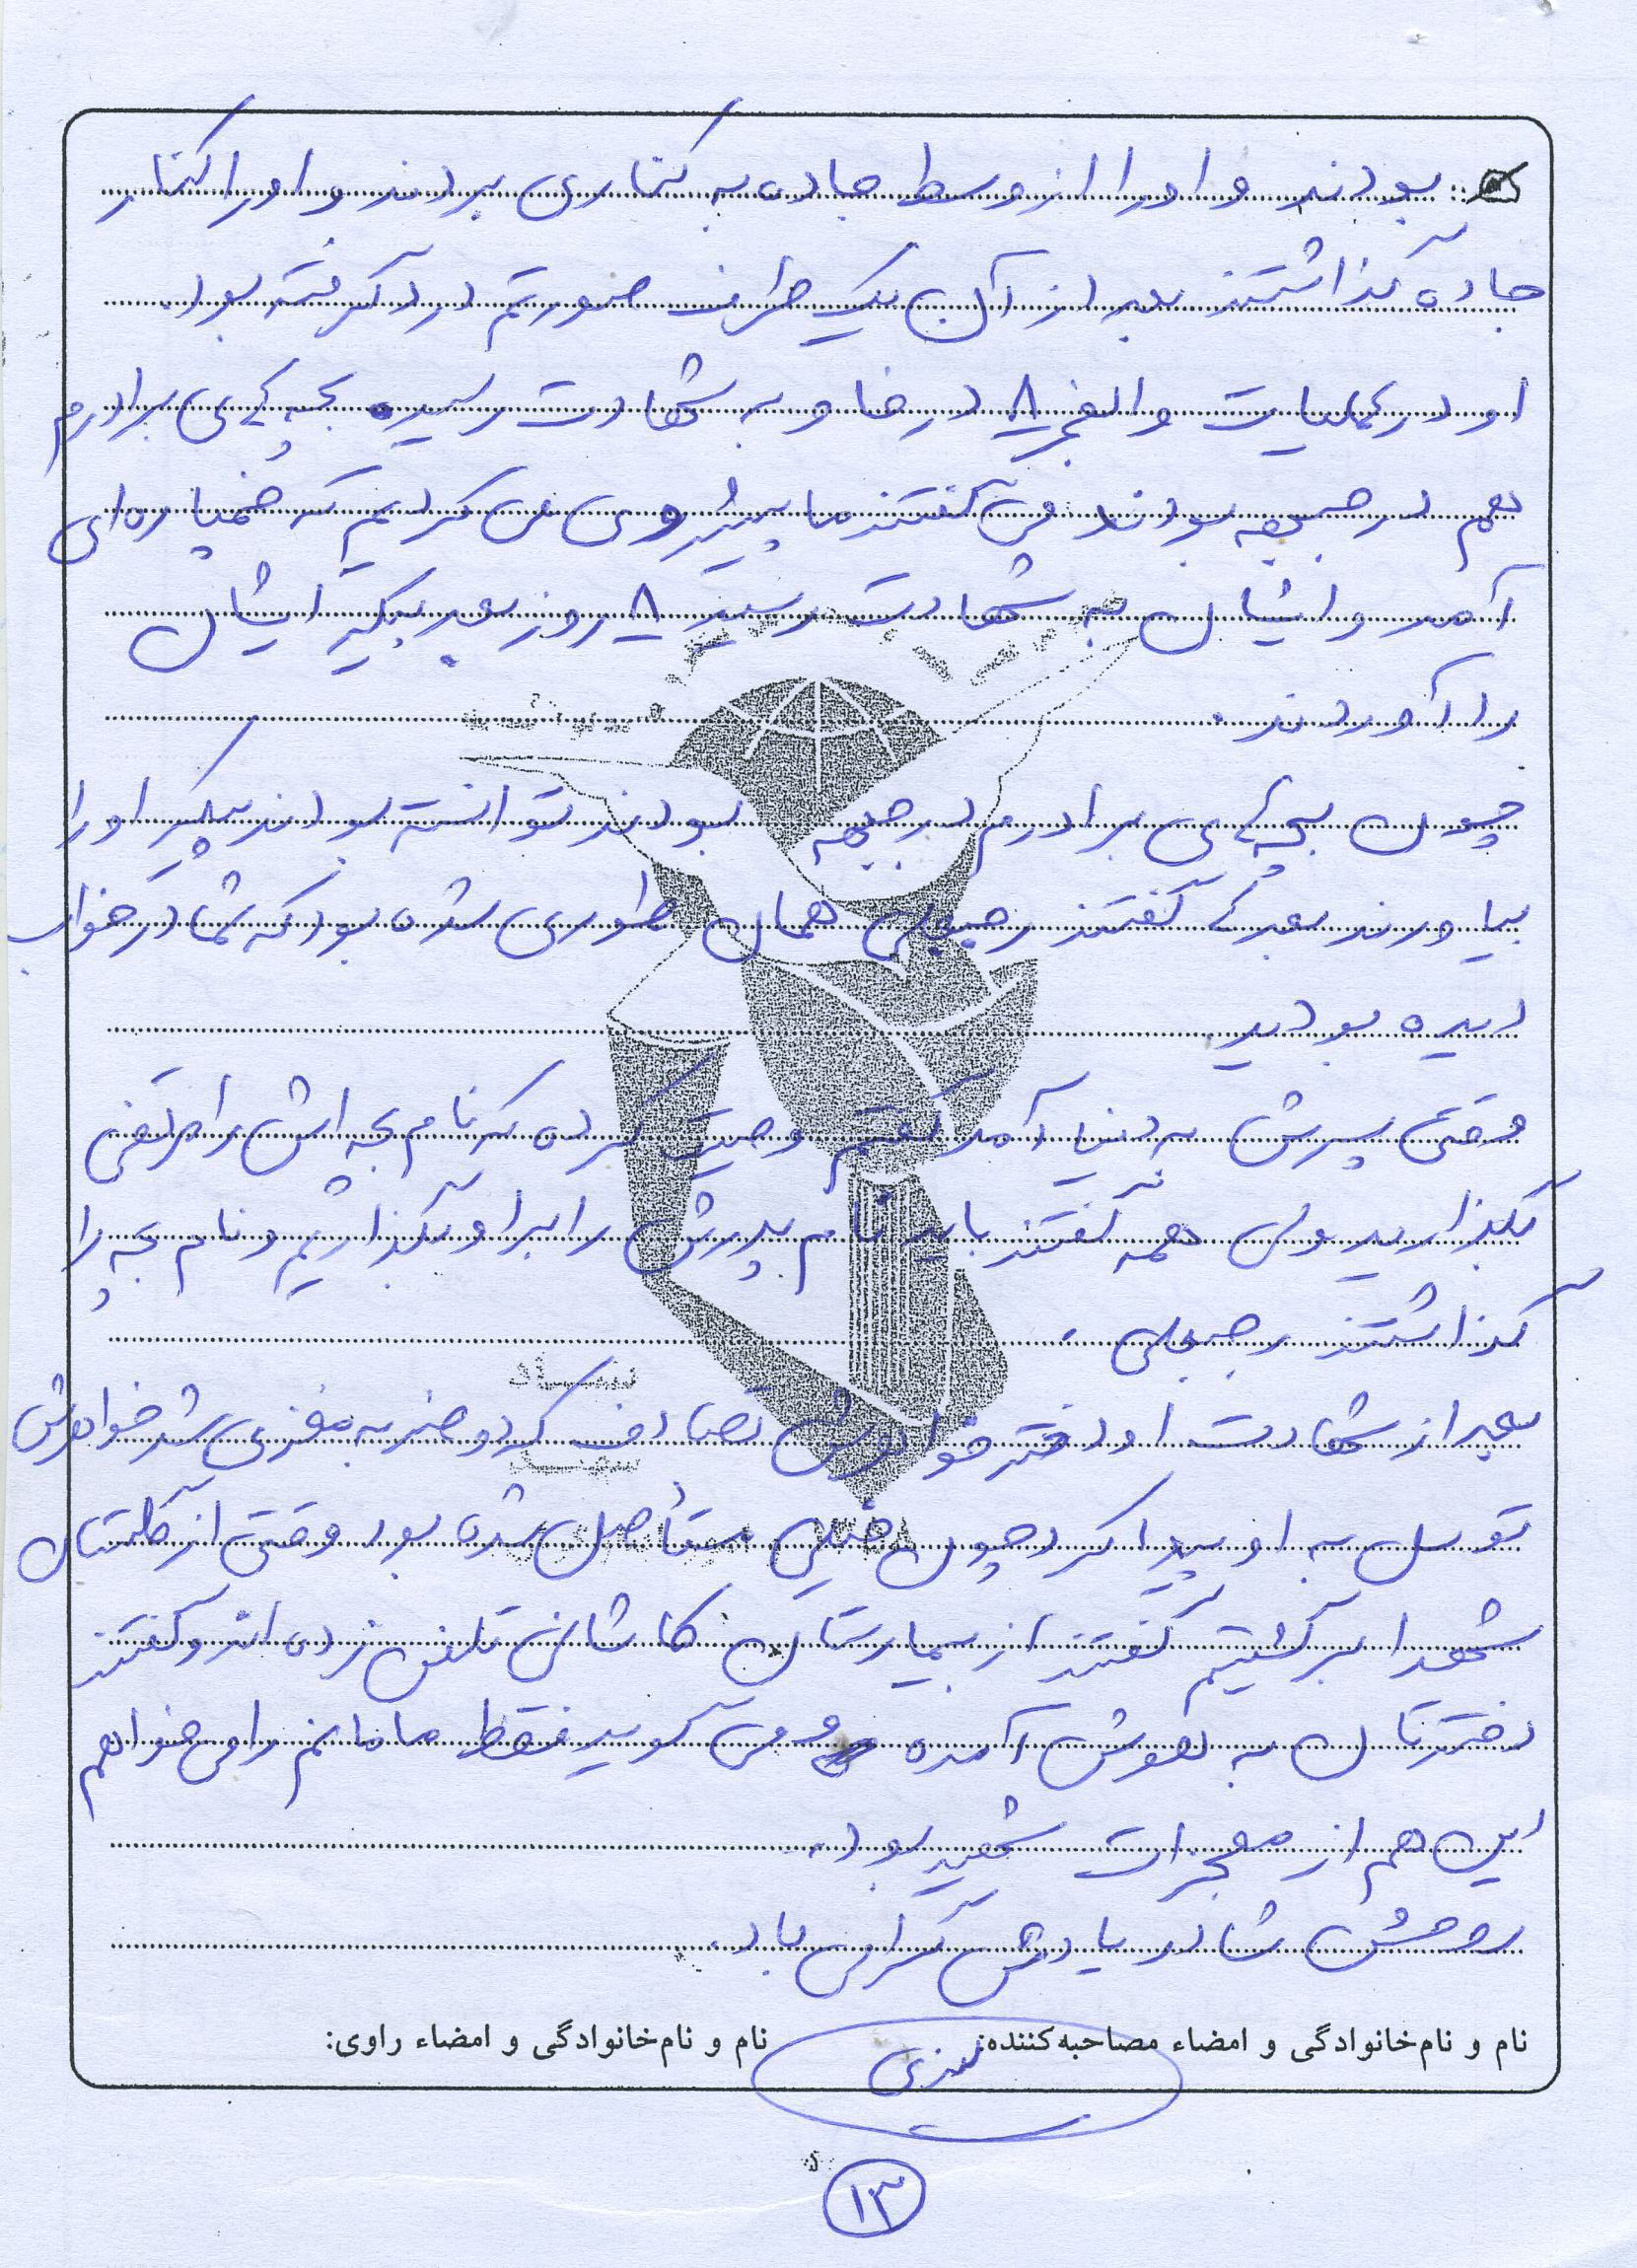 بودند و او را از وسط جاده به کناری بردند و او را کنار
جاده گذاشتند بعد از آن یک طرف صورتم درد گرفته بود.
او در عملیات والفجر ۸ در فاو به شهادت رسید، بچه‌های برادرم
هم در جبهه بودند می‌گفتند ما پیشروی می‌کردیم که خمپاره‌ای
آمد و ایشان به شهادت رسید ۸ روز بعد پیکر ایشان
را آوردند.
چون بچه‌های برادرم در جبهه بودند توانسته بودند پیکر او را
بیاورند بعدها گفتند رجبعلی همان طوری شده بود که شما در خواب
دیده بودید.
وقتی پسرش به دنیا آمد گفتم وصیت کرده که نام بچه‌اش را مرتضی
بگذارید ولی همه گفتند باید نام پدرش را بر او بگذاریم و نام بچه را
گذاشتند رجبعلی.
بعد از شهادت او دختر خواهرش تصادف کرد و ضربه مغزی شد خواهرش
توسل به او پیدا کرد چون خیلی مستأصل شده بود وقتی از گلستان
شهدا برگشتیم گفتند از بیمارستان کاشانی تلفن زده‌اند و گفتند
دخترتان به هوش آمده و می‌گوید فقط مامانم را می‌خواهم
این هم از معجزات شهید بود.
روحش شاد و یادش گرامی باد.
نام و نام‌خانوادگی و امضاء مصاحبه‌کننده: نام و نام‌خانوادگی و امضاء راوی:
۱۳